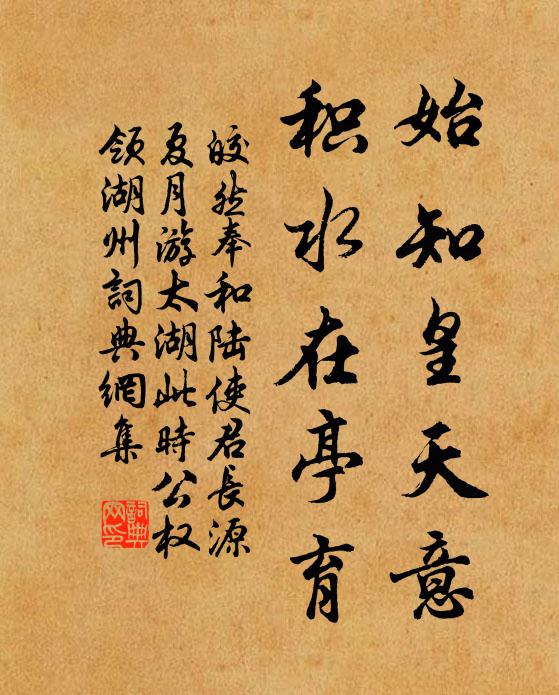 始知皇天意
积水在亭育
皎然奉和陆使君長源
夏月游太湖此時公权
领湖州詞典網集
詞典网印